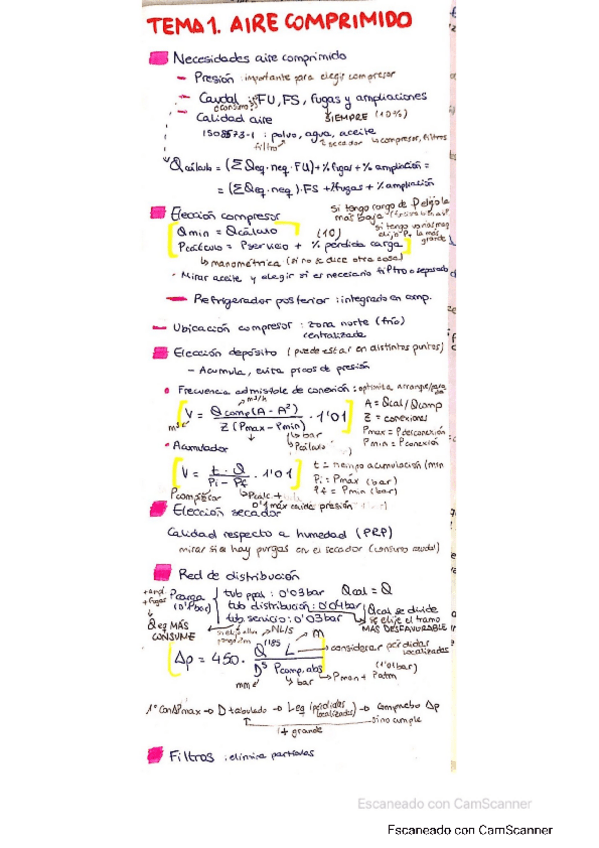 TEMA 1. AIRE COMPRIMIDO
Necesidades aire comprimido
- Presión : importante para elegir compresor
- Caudal : FU, FS, fugas y ampliaciones
(consumo)
SIEMPRE (10%)
- Calidad aire
ISO8573-1 : polvo, agua, aceite
filtro secador compresor, filtros
Qcálculo = (ΣQeq·neq·FU) + % fugas + % ampliación =
= (ΣQeq·neq).FS + %fugas + % ampliación
Elección compresor
si tengo cargo de P elijo la
más baja
Qmin = Qcálculo (10)
si tengo varias
elijo P la más
grande
Pcálculo = Pservicio + % pérdida carga
↳ manométrica (si no se dice otra cosa)
- Mirar aceite y elegir si es necesario filtro o separado
- Refrigerador posterior : integrado en comp.
- Ubicación compresor : zona norte (frío)
centralizada
Elección depósito (puede estar en distintos puntos)
- Acumula, evita picos de presión
• Frecuencia admisible de conexión : optimiza arranque/paro
m³/h
V = Qcomp(A - A²) / Z (Pmax - Pmin) · 1'01
m³
A = Qcal/Qcomp
Z = conexiones
Pmax = Pdesconexión
Pmin = Pconexión
bar
Pcálculo
• Acumulador
V = t · Q / Pi - Pf · 1'01
t = tiempo acumulación (min
Pi = Pmáx (bar)
Pf = Pmin (bar)
Pcompresor
Pcalc +
0'1 máx caída presión
Elección secador
Calidad respecto a humedad (PRP)
mirar si hay purgas en el secador (consumo caudal)
Red de distribución
+ ampl
+ fugas
Pcarga
(0'1 Pbar)
tub ppal : 0'03 bar Qcal = Q
tub distribución : 0'04 bar
tub servicio : 0'03 bar
Qcal se divide
se elije el tramo
MAS DESFAVORABLE
Qeq MÁS
CONSUME
NL/s
m
Δp = 450 · Q^1'85 L / D⁵ Pcomp, abs
considerar pérdidas
localizadas
(1'01bar)
Pman + Patm
mm
bar
1º con ΔPmax → D tabulado → Leq (pérdidas localizadas) → compruebo Δp
si no cumple
1 + grande
Filtros : elimina partículas
Escaneado con CamScanner
Escaneado con CamScanner